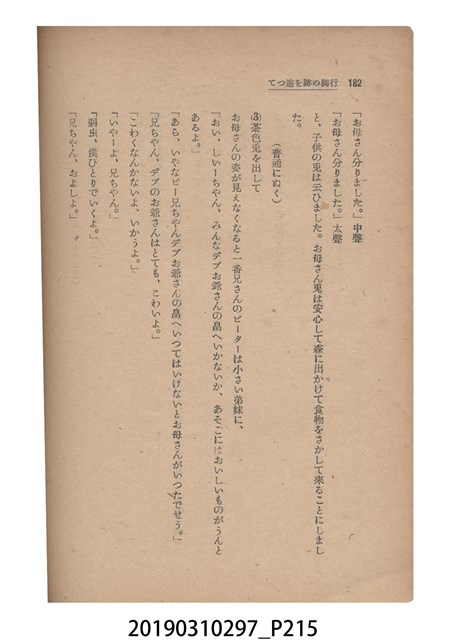 182 行脚の跡を追つて
『お母さん分りました。』中聲
『お母さん分りました。』太聲
と、子供の兎は云ひました。お母さん兎は安心して森に出かけて食物をさがして來ることにしまし
た。
(普通にぬく)
(3)茶色兎を出して
お母さんの姿が見えなくなると一番兄さんのピーターは小さい弟妹に、
『おい、しいーちやん、みんなデブお爺さんの畠へいかないか、あそこにはおいしいものがうんと
あるよ。』
『あら、いやなピー兄ちやんデブお爺さんの畠へいつてはいけないとお母さんがいつたでせう。』
『兄ちやん、デブのお爺さんはとても、こわいよ。』
『こわくなんかないよ、いかうよ。』
『いやーよ、兄ちやん。』
『弱虫、僕ひとりでいくよ。』
『兄ちやん、およしよ。』
20190310297_P215